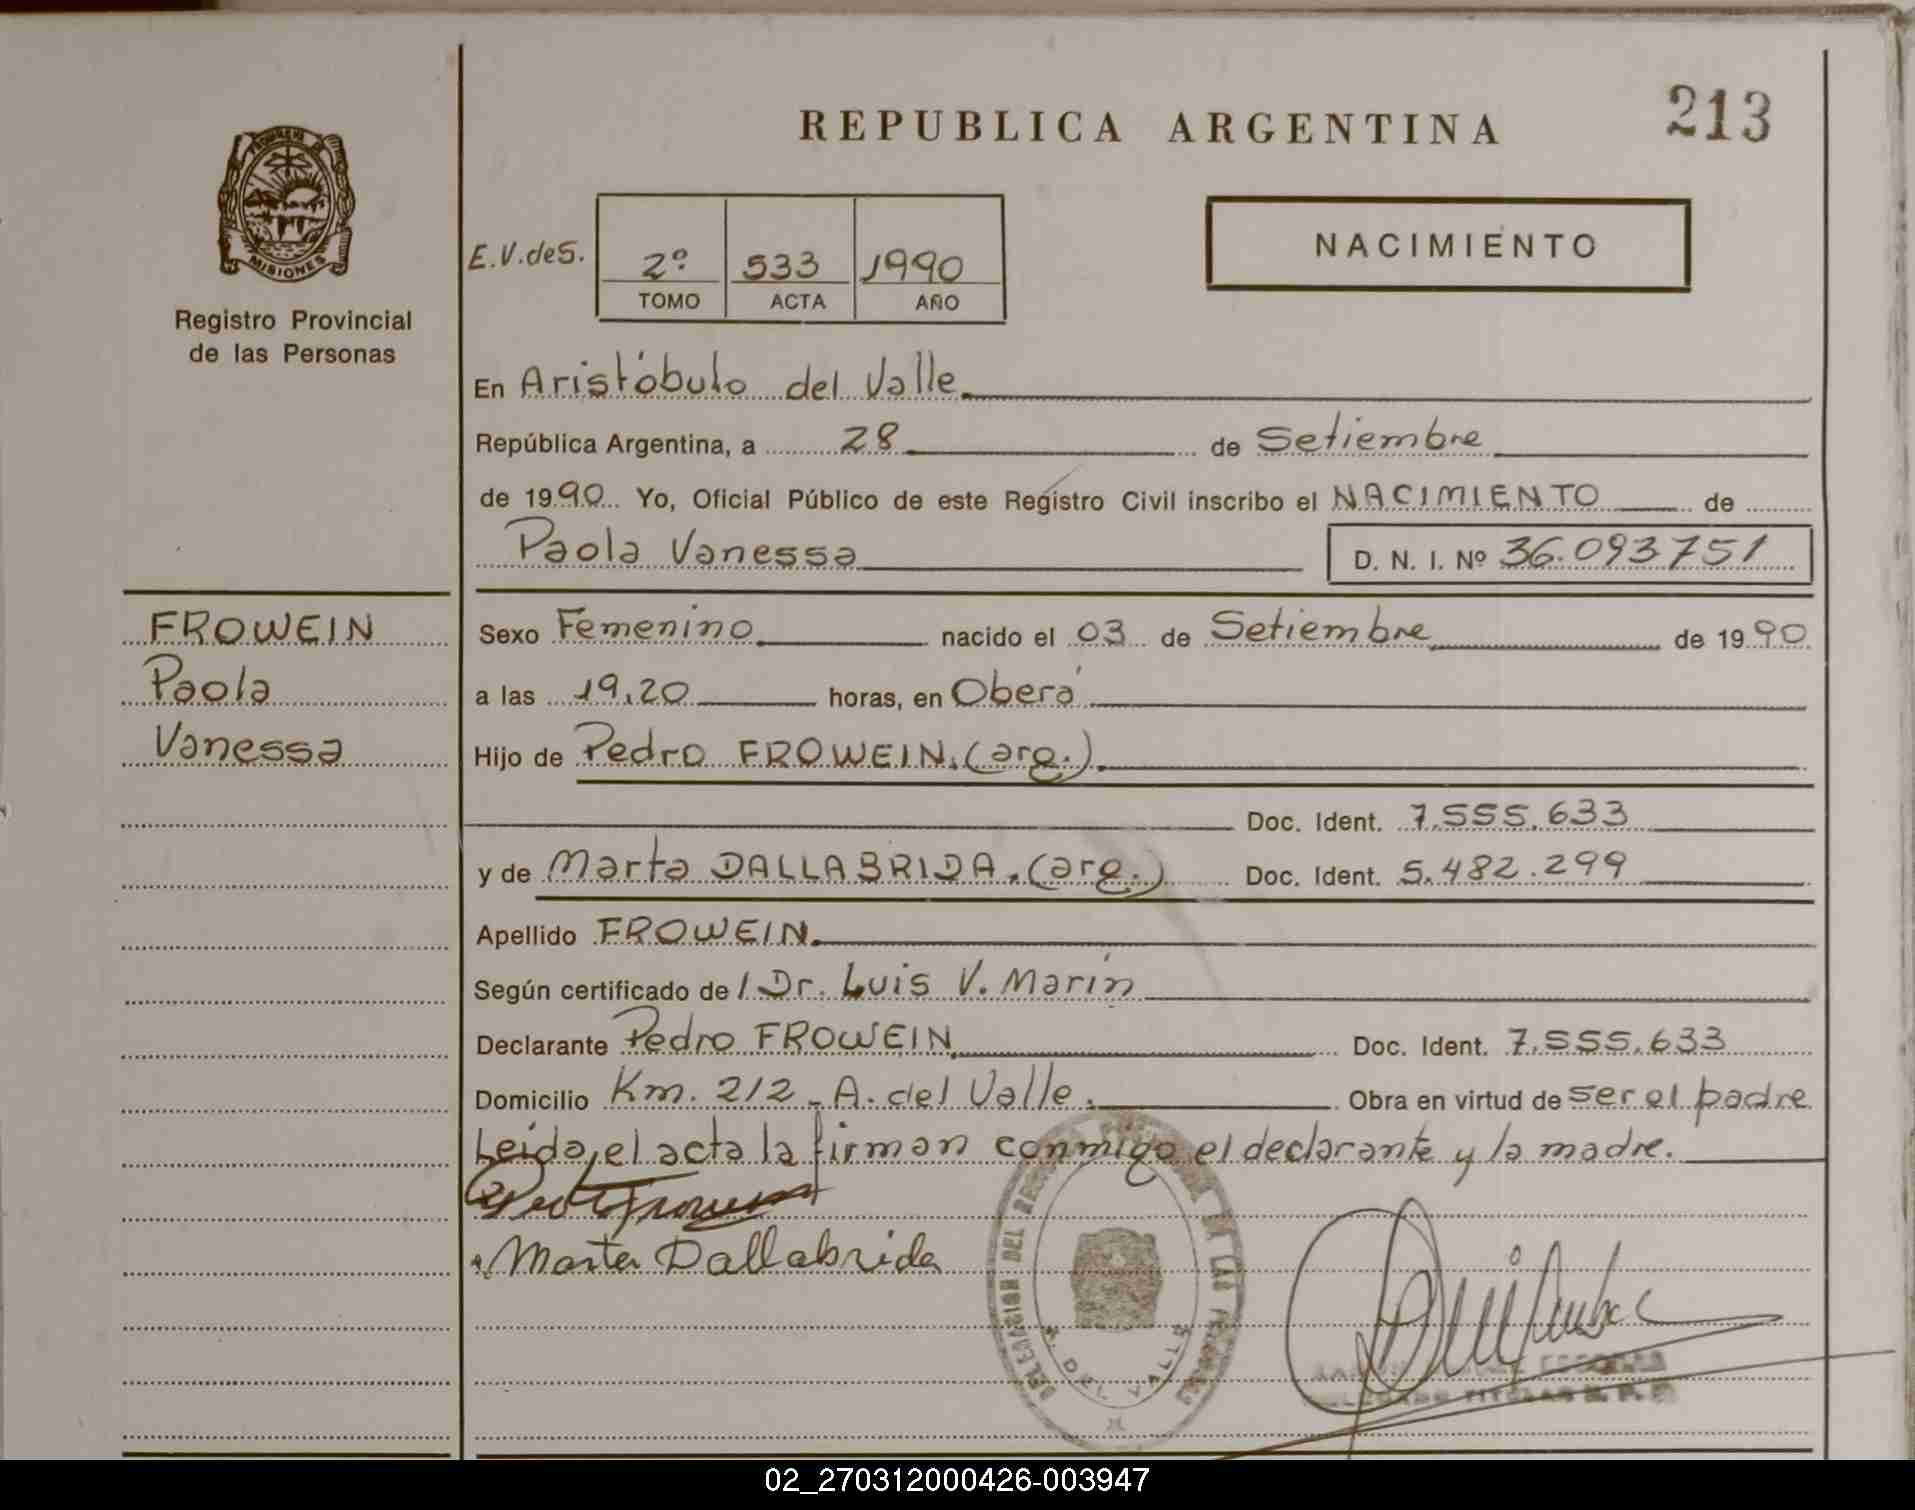 REPUBLICA ARGENTINA
213
MISIONES
Registro Provincial
de las Personas
E.V.deS.
2º 533 1990
TOMO ACTA AÑO
NACIMIENTO
En Aristóbulo del Valle.
República Argentina, a 28 de Setiembre
de 1990 Yo, Oficial Público de este Registro Civil inscribo el NACIMIENTO de
Paola Vanessa D. N. I. Nº 36.093751
FROWEIN
Paola
Vanessa
Sexo Femenino nacido el 03 de Setiembre de 1990
a las 19.20 horas, en Oberá
Hijo de Pedro FROWEIN. (arg.).
Doc. Ident. 7.555.633
y de Marta DALLABRIDA. (arg.) Doc. Ident. 5.482.299
Apellido FROWEIN.
Según certificado de / Dr. Luis V. Marín
Declarante Pedro FROWEIN Doc. Ident. 7.555.633
Domicilio Km. 212 - A. del Valle. Obra en virtud de ser el padre
Leída, el acta la firman conmigo el declarante y la madre.
Marta Dallabrida
DELEGACION DEL LAS
A. DEL VALLE
TITULAR
02_270312000426-003947